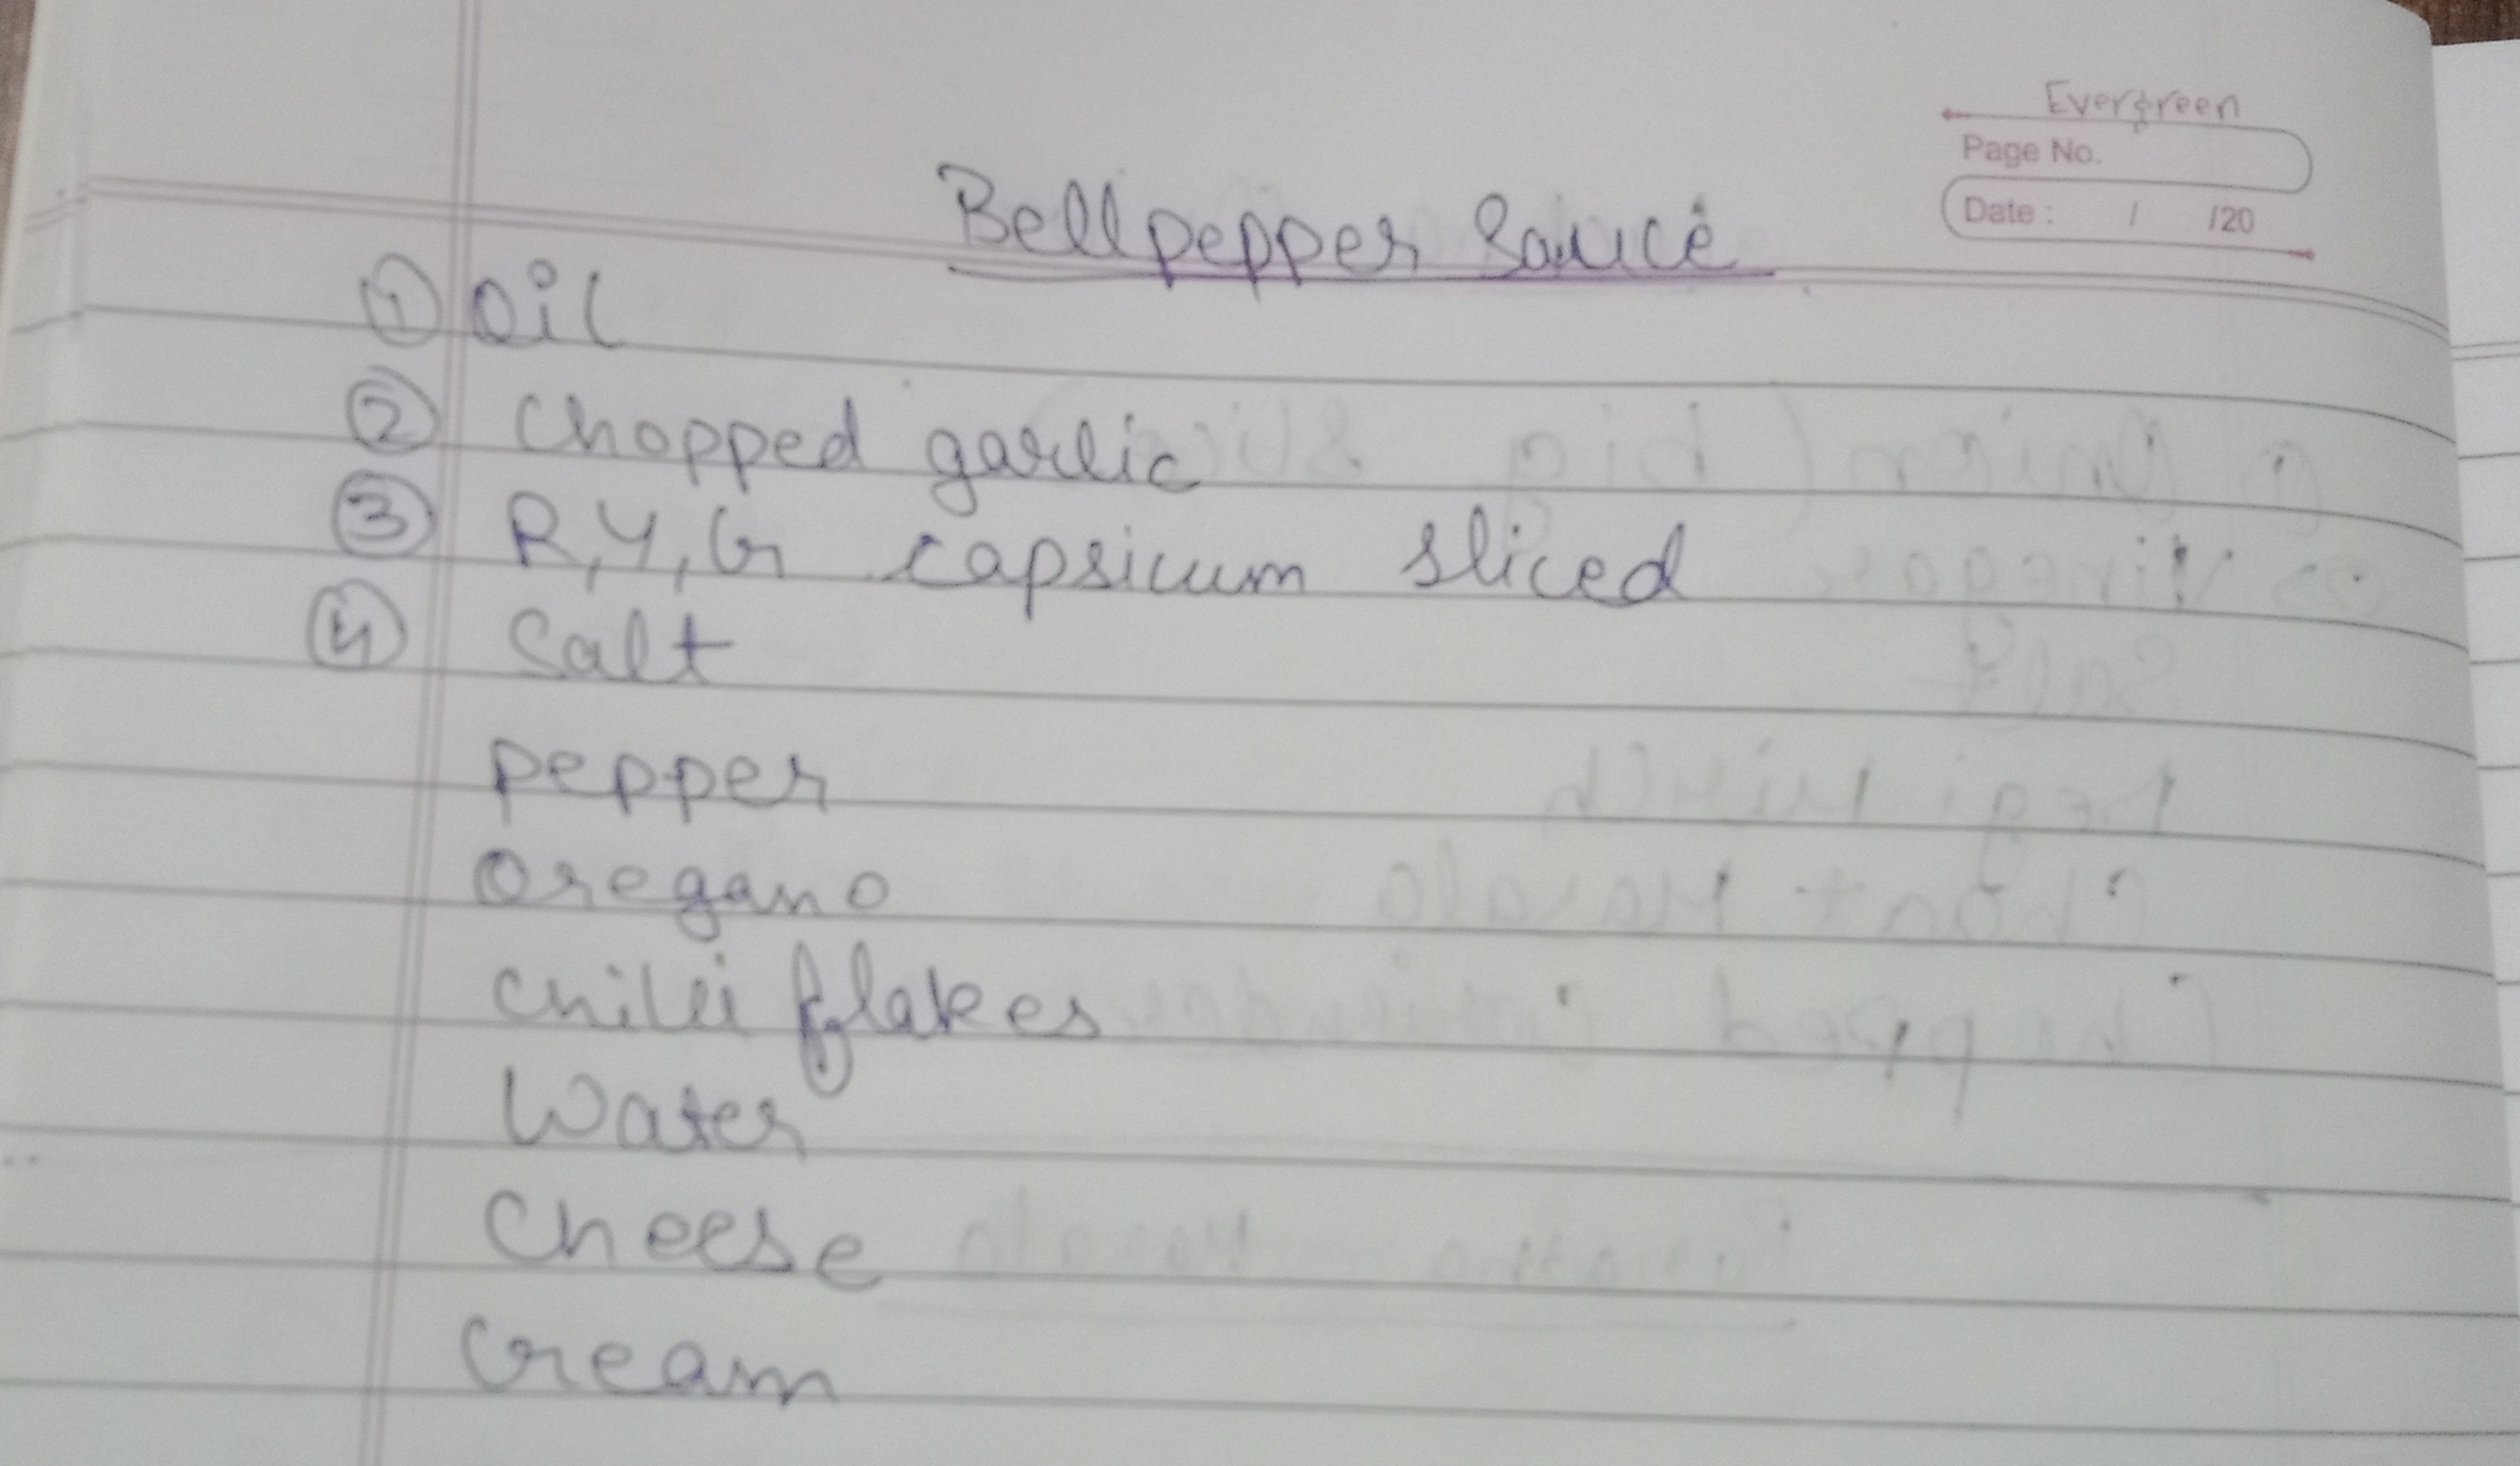 Evergreen
Page No.
Date : / /20
Bellpepper Sauce
① Oil
② Chopped garlic
③ R, Y, G capsicum sliced
④ Salt
pepper
Oregano
Chilli flakes
Water
Cheese
Cream